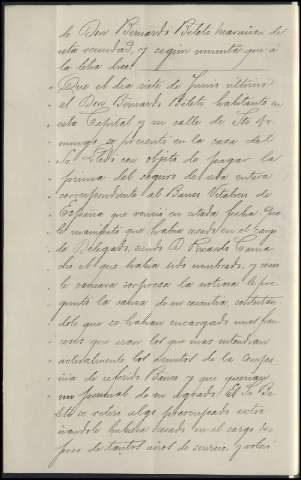 de Don Bernardo Belete
esta vecindad, y según minuta que á
la letra dice:
Que el dia siete de Junio ultimo
el Don Bernardo Belete habitante en
esta Capital y su calle de Sto Do-
mingo, se presentó en la casa del
con objeto de pagar la
prima del seguro de vida entera
correspondiente al Banco Vitalicio de
España que vencia en citada fecha. Que
le manifestó que habia cesado en el cargo
de Delegado, siendo D. Ricardo
el que habia sido nombrado, y como
le causara sorpresa la noticia le pre-
guntó la causa de su cesantia, contestan-
dole que se habian encargado unos
que eran los que mas entendian
actualmente los asuntos de la Compa-
ñia de referido Banco y que querian
un personal de su agrado. El Sr Be-
lete se volvió algo preocupado
hubiera cesado en el cargo des-
pues de tantos años de servicio, y volvió